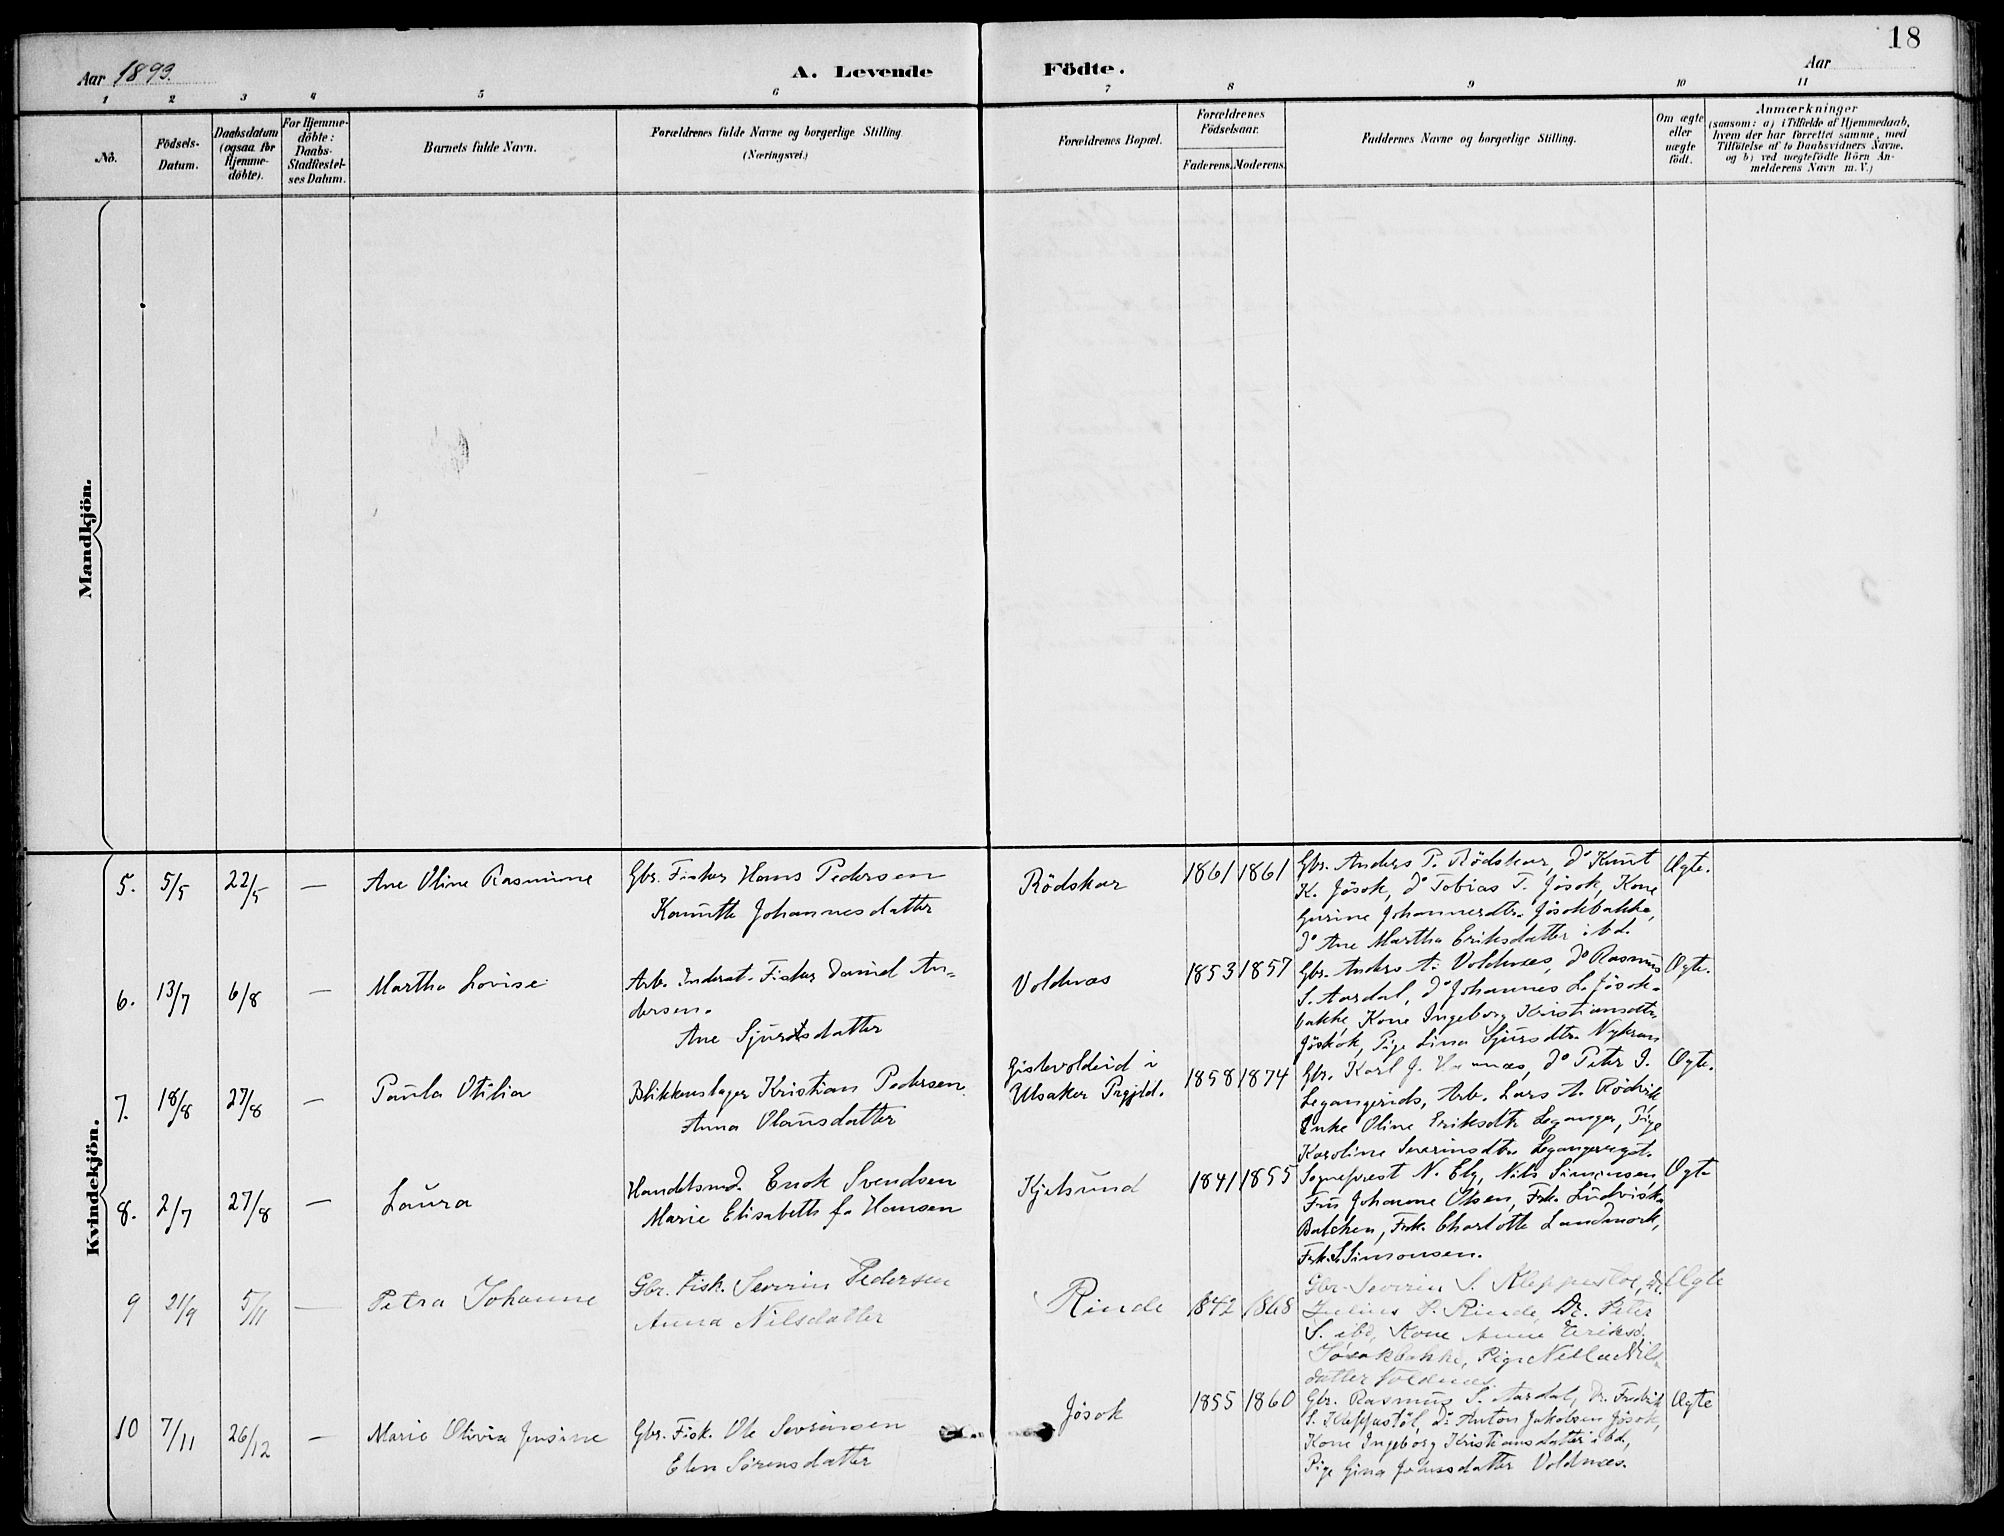 18
Aar 1893. A. Levende Födte. Aar
1 2 3 4 5 6 7 8 9 10 11
No.
Födsels-
Datum.
Daabsdatum
(ogsaa for
Hjemme-
döbte).
For Hjemme-
döbte:
Daabs-
Stadfæstel-
ses Datum.
Barnets fulde Navn.
Forældrenes fulde Navne og borgerlige Stilling
(Næringsvei.)
Forældrenes Bopæl.
Forældrenes
Födselsaar.
Faderens. Moderens.
Faddernes Navne og borgerlige Stilling.
Om ægte
eller
uægte
födt.
Anmærkninger
(saasom: a) i Tilfælde af Hjemmedaab,
hvem der har forrettet samme, med
Tilföielse af to Daabsvidners Navne.
og b) ved uægtefödte Börn An-
melderens Navn m. V.)
Mandkjön.
Kvindekjön.
5. 5/5 22/5 — Ane Oline Rasmine
Gbr. Fisker Hans Pedersen
Johannesdatter
Rödskar 1861 1861
Gbr. Anders P. Rödskar, do Knut
K. Jösok, do Tobias T. Jösok, Kone
Gurine Johannesdtr. Jösokbakke,
do Ane Martha Eriksdatter ibd.
Ægte.
6. 13/7 6/8 — Martha Lovise
Arb. Inderst. Fisker Daniel An-
dersen.
Ane Sjursdatter
Voldnæs 1853 1857
Gbr. Anders A. Voldnæs, do Rasmus
S. Aardal, do Johannes L. Jösok-
bakke, Kone Ingeborg Kristiansdtr.
Jösok, Pige Lina Sjursdtr.
Ægte.
7. 18/8 27/8 — Paula Otilia
Blikkenslager Kristian Pedersen
Anna Olausdatter
i
Prgjld.
1858 1874
Gbr. Karl J. do Peter J.
Arb. Lars A. Rödvik
Enke Oline Eriksdtr. Leganger, Pige
Karoline Severinsdtr.
Ægte.
8. 2/7 27/8 — Laura
Handelsmd. Enok Svendsen
Marie Elisabeth f. Hansen
Kjelsund 1841 1855
Sognepræst N. Elg, Nils Simonsen,
Fru Johanne Olsen, Frk. Ludviska
Balchen, Frk. Charlotte Landmark,
Frk. S. Simonsen.
Ægte
9 21/9 5/11 — Petra Johanne
Gbr. Fisk. Severin Pedersen
Anna Nilsdatter
Rinde 1842 1865
Gbr. Severin S. Kleppestöl, Gbr.
Julius P. Rinde, Do. Peter
S. ibd, Kone Anne Eriksd.
Jösokbakke, Pige Nils-
datter Voldnæs
Ægte
10 7/11 26/12 — Marie Olivia Jensine
Gbr. Fisk. Ole Severinsen
Elen Sörensdatter
Jösok 1855 1860
Gbr. Rasmus S. Aardal, Do. Fredrik
S. Kleppestöl, do Anton Jakobsen Jösok,
Kone Ingeborg Kristiansdatter ibd.,
Pige Gina Voldnæs.
Ægte